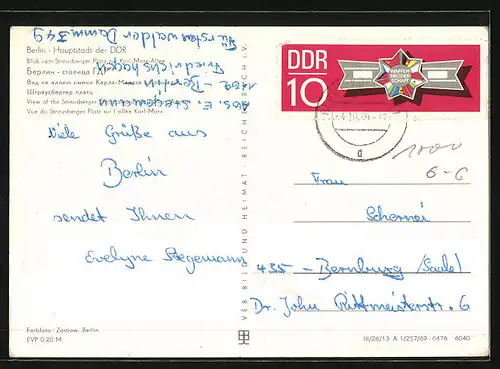 Berlin - Hauptstadt der DDR
Blick vom Strausberger Platz zur Karl-Marx-Allee
Берлин - столица ГДР
Вид на аллею имени Карла Маркса
Штраусбергер платц
View of the Strausberger Platz
Vue du Strausberger Platz sur l'allée Karl-Marx
Abs. E. Stegemann
Berlin
Friedrichshagen
Fürstenwalder Damm 349
viele Grüße aus
Berlin
sendet Ihnen
Evelyne Stegemann
Farbfoto: Zastrow, Berlin
EVP 0.20 M
VEB BILD UND HEIMAT REICHENBACH i. V.
DDR
10
WAFFEN
BRÜDER
SCHAFT
1000
6-C
Frau
435 - Bernburg (Saale)
Dr. John Rittmeisterstr. 6
III/26/13 A 1/257/69 - 6476 6040